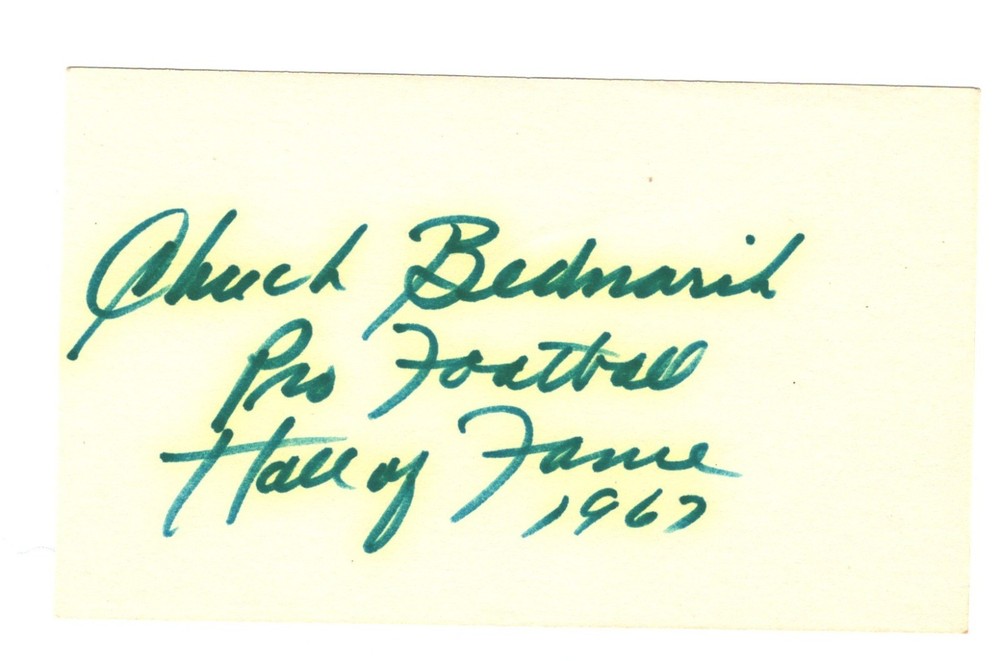 Chuck Bednarik
Pro Football
Hall of Fame
1967